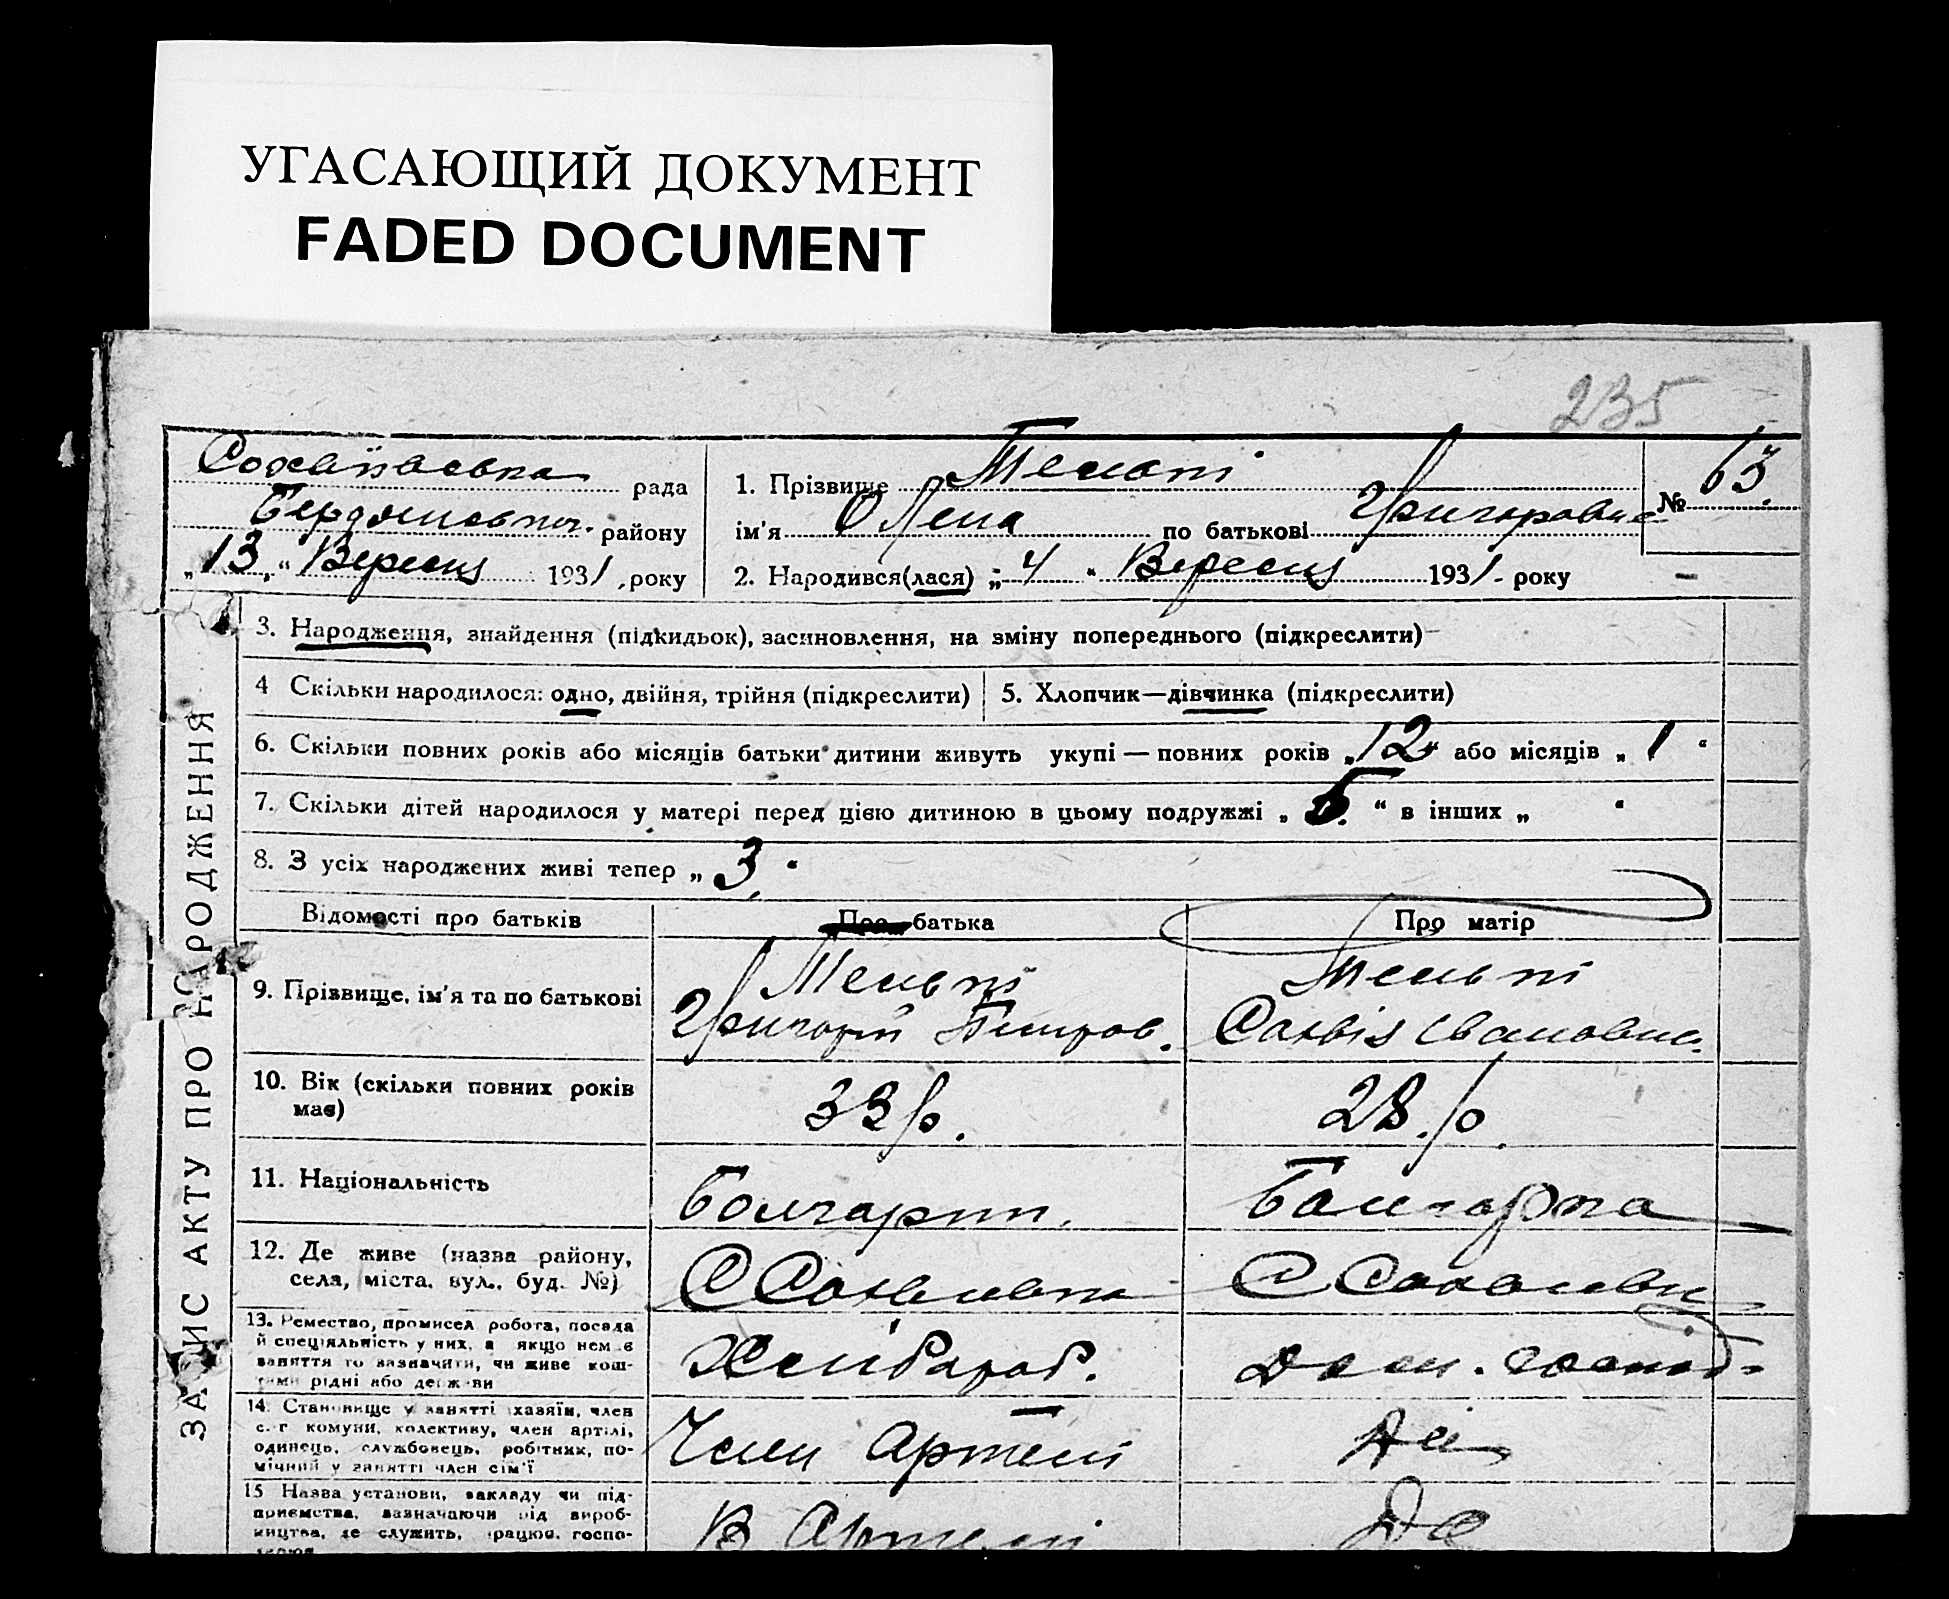 УГАСАЮЩИЙ ДОКУМЕНТ
FADED DOCUMENT
235
рада
району
„13„ “ Вересня 1931. року
1. Прізвище
ім'я Олена по батькові Григоровна
2. Народився(лася) „ 4 “ Вересня 1931. року
№ 63.
ЗАПИС АКТУ ПРО НАРОДЖЕННЯ
3. Народження, знайдення (підкидьок), засиновлення, на зміну попереднього (підкреслити)
4 Скільки народилося: одно, двійня, трійня (підкреслити)
5. Хлопчик—дівчинка (підкреслити)
6. Скільки повних років або місяців батьки дитини живуть укупі — повних років „12“ або місяців „ 1 “
7. Скільки дітей народилося у матері перед цією дитиною в цьому подружжі „ “ в інших „ “
8. З усіх народжених живі тепер „ 3 “
Відомості про батьків
Про батька
Про матір
9. Прізвище, ім'я та по батькові
Григорій
Івановна.
10. Вік (скільки повних років
має)
33 р.
28. р.
11. Національність
Болгарин.
Болгарка
12. Де живе (назва району,
села, міста, вул., буд. №)
13. Ремество, промисел робота, посада
й спеціяльність у них, а якщо нема
заняття то зазначити, чи живе кош-
тами рідні або держави
Хлібороб.
Дом.
14. Становище у занятті хазяїн, член
с.-г комуни, колективу, член артілі,
одинець, службовець, робітник, по-
мічний у занятті член сім'ї
Член Артелі
15 Назва установи, закладу чи під-
приємства, зазначаючи рід вироб-
ництва, де служить, працює, госпо-
В Артелі